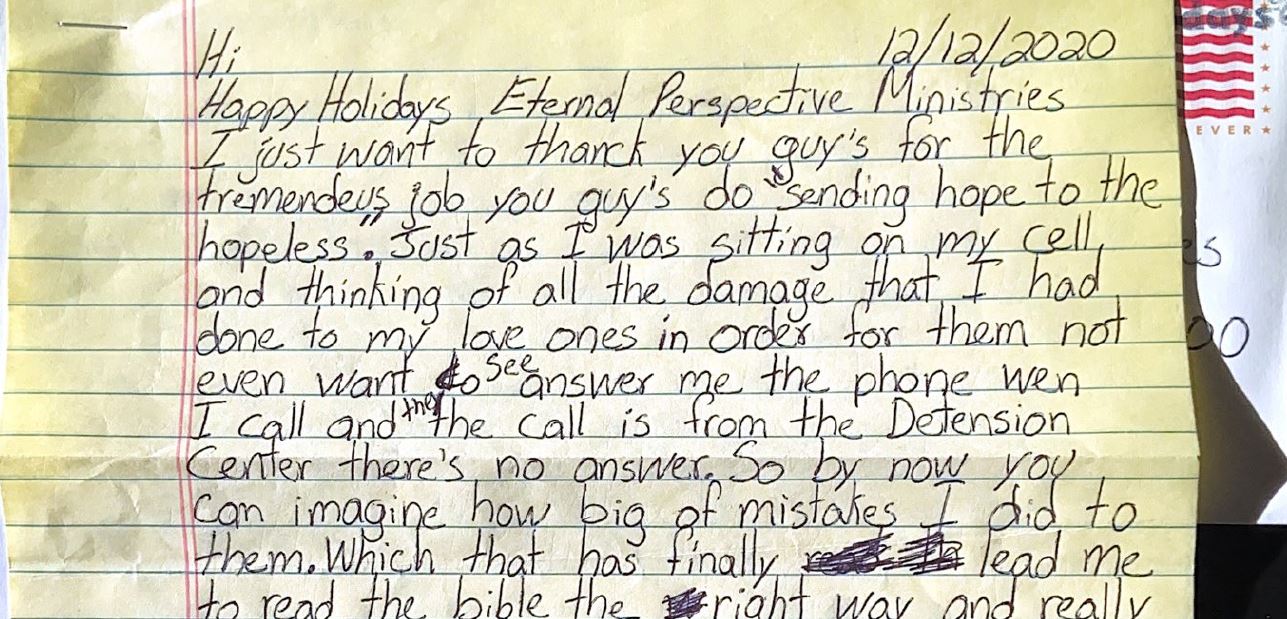 Hi 12/12/2020
Happy Holidays Eternal Perspective Ministries
I just want to thanck you guy's for the
tremendeus job you guy's do "sending hope to the
hopeless". Just as I was sitting on my cell,
and thinking of all the damage that I had
done to my love ones in order for them not
even want to see answer me the phone wen
I call and they the call is from the Detension
Center there's no answer. So by now you
can imagine how big of mistakes I did to
them. Which that has finally lead me
to read the bible the right way and really
days
EVER
es
00